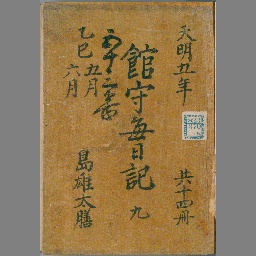 天明五年
共十四冊
館守毎日記 九
乙巳 五月
六月
島雄太膳